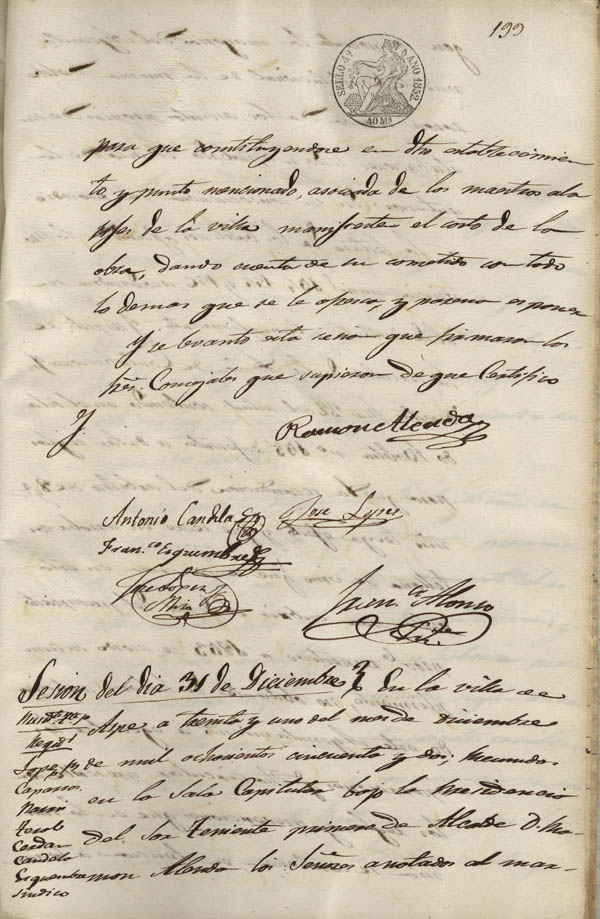 199
SELLO 4º AÑO 1852
40 MS
para que constituyendose en dho establecimien
to, y punto mencionado, asociado de los maestros ala
rifes de la villa manifieste el costo de la
obra, dando cuenta de su cometido con todo
lo demas que se le ofresca, y paresca esponer
Y se levanto esta sesion que firmaron los
Sres. Concejales que supieron de que Certifico
Ramon Alenda
Antonio Candela Jose Lopez
Fran.co Esquembre
Jose Lopez
Miro
Juan Alonso
Sesion del dia 31 de Diciembre En la villa de
Aspe a treinta y uno del mes de diciembre
Regid.s
Lopez de mil ochocientos cincuenta y dos; reunidos
Caparros
en la Sala Capitular bajo la Presidencia
Terol
Cerdan del Sor Teniente primero de Alcalde D. Ra-
Candela
Esquembre mon Alenda los Señores anotados al mar-
Sindico